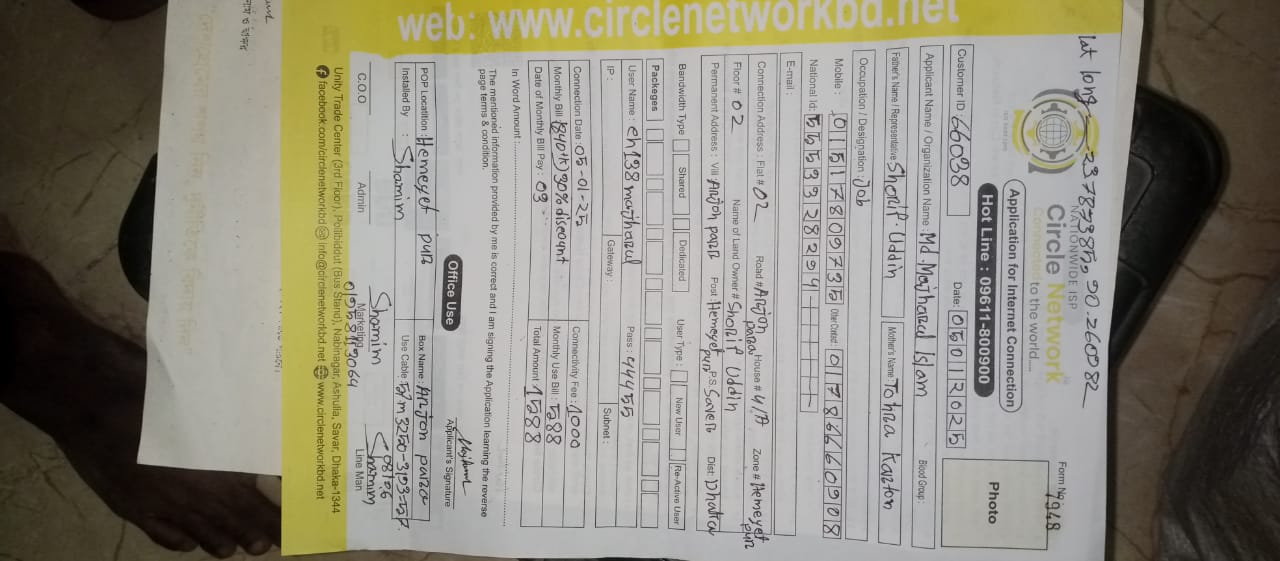 lat long - 23.789385, 90.260982
NATIONWIDE ISP
Circle Network
Connected to the world....
Application for Internet Connection
Hot Line : 09611-800900
Form No. 7948
Photo
Customer ID : 66038
Date: 05012025
Applicant Name / Organization Name : Md. Majharul Islam
Blood Group :
Father's Name / Representative Shorif Uddin
Mother's Name : Tohra
Occupation / Designation : Job
Mobile : 01517809735 Other Contact : 01786660908
National Id: 5553328294
E-mail :
Connection Address : Flat # 02 Road # Anjon para House # 4/A Zone # Hemeyet pur
Floor # 02 Name of Land Owner # Shorif Uddin
Permanent Address : Vill : Anjon para Post : Hemeyet pur P.S. Saver Dist: Dhaka
Bandwidth Type Shared Dedicated User Type : New User Re-Active User
Packeges
User Name : eh138majharul Pass : 44455
IP : Gateway : Subnet :
Connection Date : 05-01-25 Connectivity Fee : 1000
Monthly Bill 30% discount Monthly Use Bill : 588
Date of Monthly Bill Pay : 09 Total Amount 1588
In Word Amount :
The mentioned information provided by me is correct and I am signing the Application learning the reverse
page terms & condition.
Applicant's Signature
Office Use
POP Locatition : Hemeyet pur Box Name : Anjon para
Installed By : Shamim Use Cable
Shamim Shamim
C.O.O Admin Marketing Line Man
Unity Trade Center (3rd Floor), Pollibiddut (Bus Stand), Nabinagar, Ashulia, Savar, Dhaka-1344
facebook.com/circlenetworkbd info@circlenetworkbd.net www.circlenetworkbd.net
web: www.circlenetworkbd.net